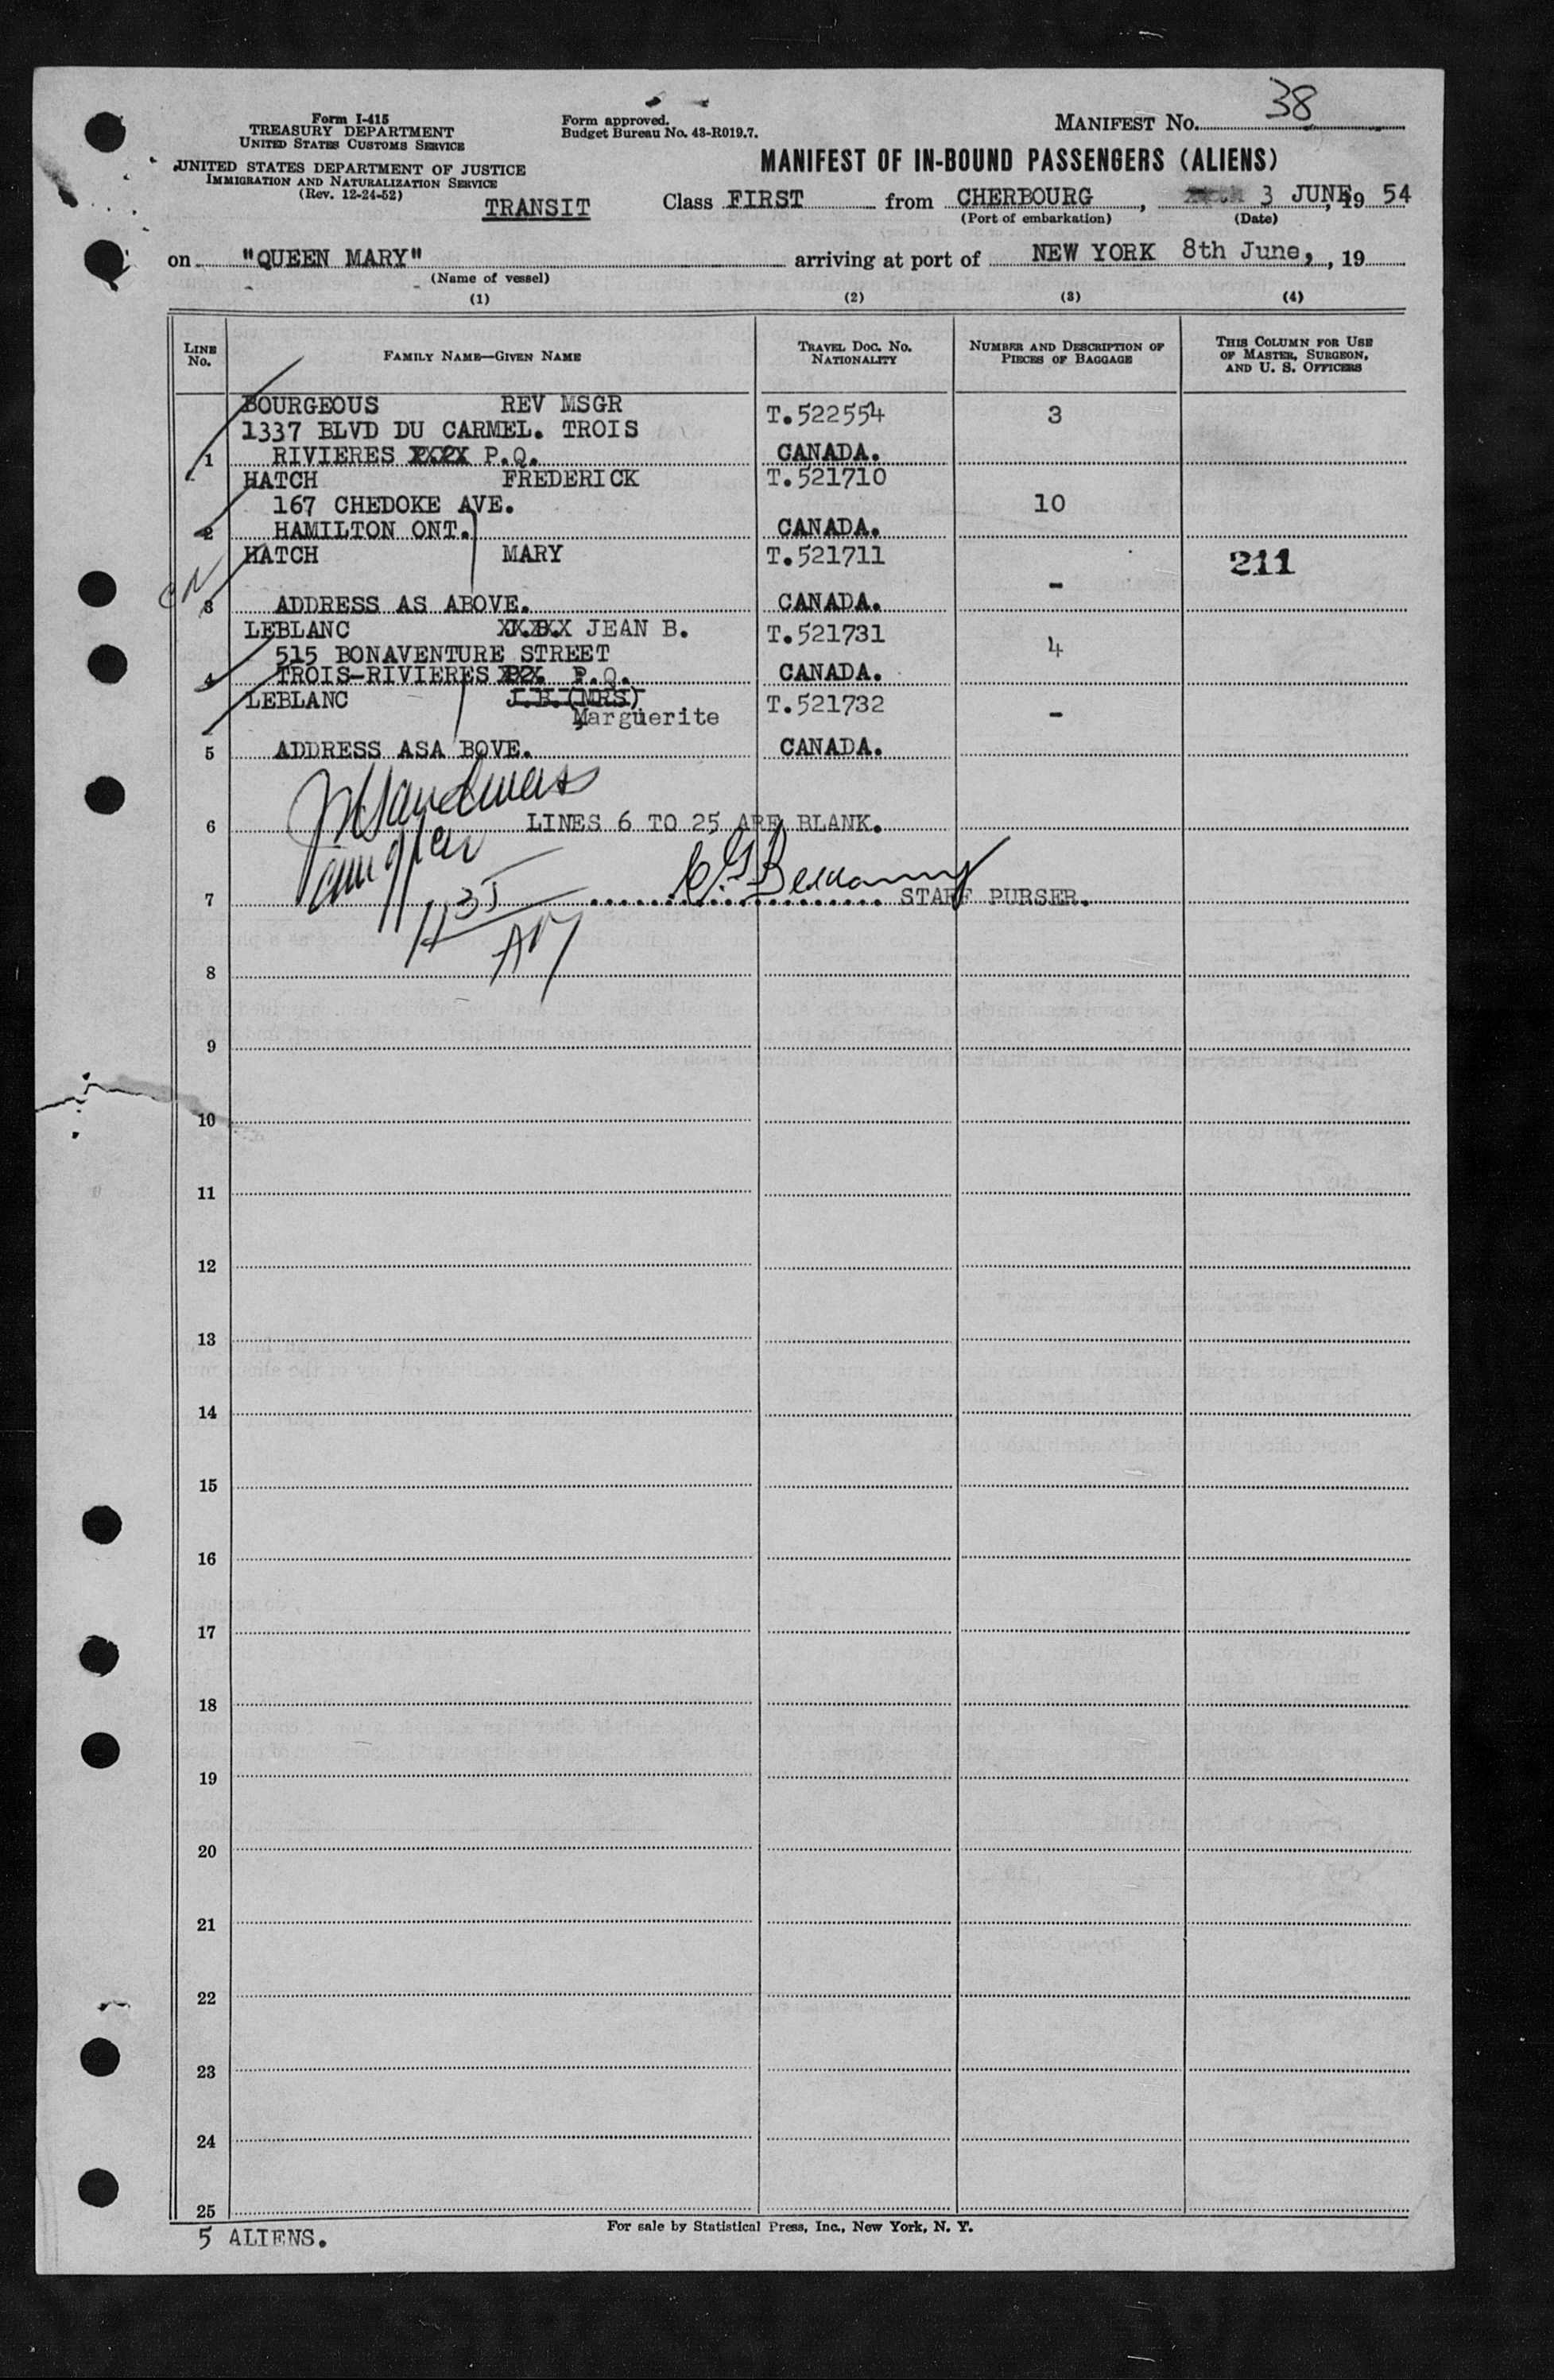 38
Form I-415
TREASURY DEPARTMENT
UNITED STATES CUSTOMS SERVICE
Form approved.
Budget Bureau No. 43-R019.7.
MANIFEST No.
UNITED STATES DEPARTMENT OF JUSTICE
IMMIGRATION AND NATURALIZATION SERVICE
(Rev. 12-24-52)
MANIFEST OF IN-BOUND PASSENGERS (ALIENS)
TRANSIT Class FIRST from CHERBOURG, 3 JUNE, 19 54
(Port of embarkation) (Date)
on "QUEEN MARY" arriving at port of NEW YORK 8th June, , 19
(Name of vessel)
(1) (2) (3) (4)
LINE No. FAMILY NAME—GIVEN NAME TRAVEL DOC. NO. NATIONALITY NUMBER AND DESCRIPTION OF PIECES OF BAGGAGE THIS COLUMN FOR USE OF MASTER, SURGEON, AND U. S. OFFICERS
BOURGEOUS REV MSGR T.522554 3
1337 BLVD DU CARMEL. TROIS
1 RIVIERES P.Q. CANADA.
HATCH FREDERICK T.521710
167 CHEDOKE AVE. 10
2 HAMILTON ONT. CANADA.
HATCH MARY T.521711 211
-
3 ADDRESS AS ABOVE. CANADA.
LEBLANC JEAN B. T.521731 4
515 BONAVENTURE STREET
4 TROIS-RIVIERES P.Q. CANADA.
LEBLANC J.B. (MRS) T.521732 -
Marguerite
5 ADDRESS ASA BOVE. CANADA.
6 LINES 6 TO 25 ARE BLANK.
7 STAFF PURSER.
8
9
10
11
12
13
14
15
16
17
18
19
20
21
22
23
24
25
5 ALIENS.
For sale by Statistical Press, Inc., New York, N. Y.